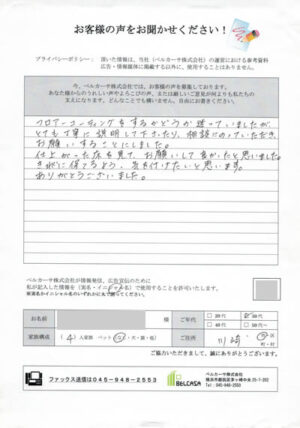 お客様の声をお聞かせください！
プライバシーポリシー： 頂いた情報は、当社（ベルカーサ株式会社）の運営における参考資料
広告・情報媒体に掲載する以外に、使用することはありません。
今、ベルカーサ株式会社では、お客様の声を募集しております。
あなた様からのうれしい声やよろこびの声、または厳しいご意見が何よりも私たちの
支えになります。どんなことでも構いません。自由にお書きください。
フロアーコーティングをするかどうか迷っていましたが、
とても丁寧に説明して下さったり、相談にのっていただき、
お願いすることにしました。
仕上がった床を見て、お願いして良かったと思いました。
きれいに保てるよう、気を付けたいと思います。
ありがとうございました。
ベルカーサ株式会社が情報発信、広告宣伝のために
私が記入した情報を（実名・イニシャル名）で使用することを許可いたします。
※実名かイニシャル名のいずれかに丸で囲ってください。
お名前 様 ご年代 20代 30代 40代 60代～
家族構成 （4）人家族 ペット（ ・犬・猫・他） ご住所 川崎 市・区 町・村
ご協力いただきまして、誠にありがとうございます。
ファックス送信は045-948-2553
BELCASA
ベルカーサ株式会社
横浜市都筑区茅ヶ崎中央25-7-202
Tel 045-948-2551